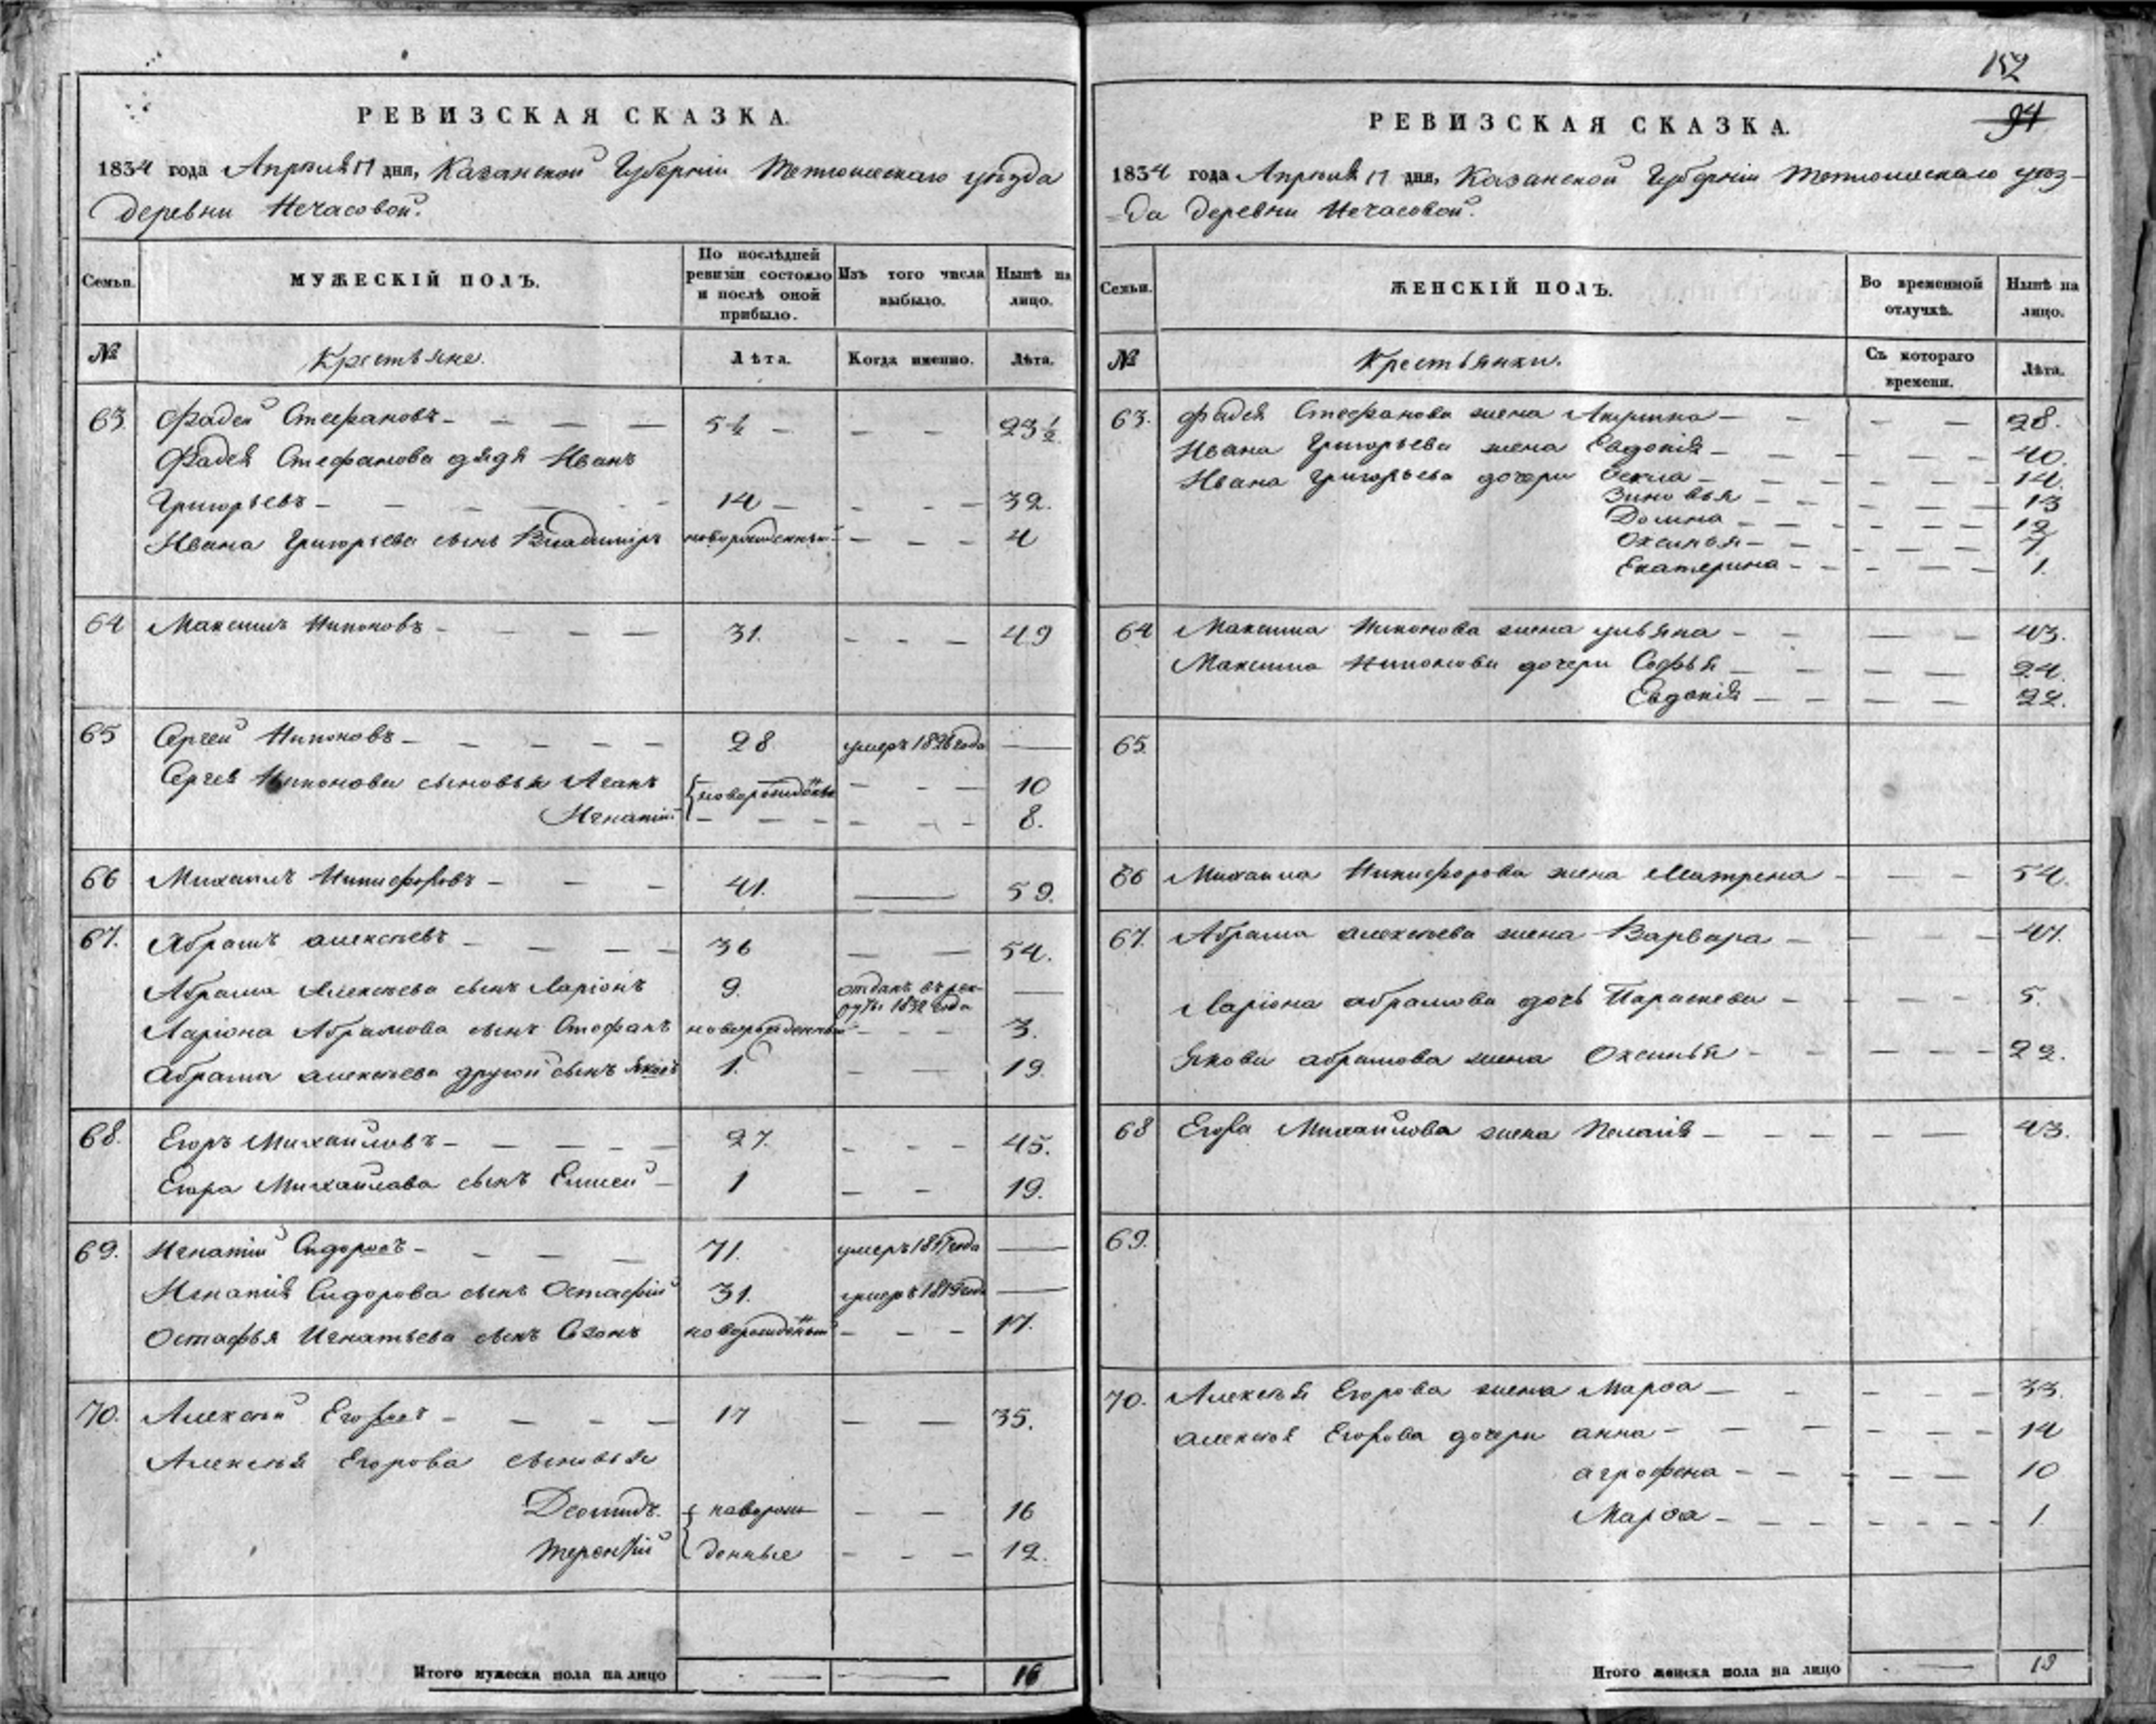 РЕВИЗСКАЯ СКАЗКА.
1834 года Апреля 17 дня, Казанской Губернiи Тетюшескаго уезда
деревни Нечасовой.
Семьи. МУЖЕСКІЙ ПОЛЪ. По послѣдней ревизіи состояло и послѣ оной прибыло. Изъ того числа выбыло. Нынѣ на лицо.
№ Крестьяне. Лѣта. Когда именно. Лѣта.
63. Фадей Стефановъ 5½ 23½
Фадея Стефанова дядя Иванъ
Григорьевъ 14 32.
Ивана Григорьева сынъ Владимiръ новорожденный 4
64 Максимъ Никоновъ 31. 49
65 Сергей Никоновъ 28 умеръ 1826 года
Сергея Никонова сыновья Аганъ новорожденные 10
Игнатiй 8.
66 Михаилъ Никифоровъ 41. 59.
67. Абрамъ алексѣевъ 36 54.
Абрама Алексѣева сынъ Ларiонъ 9. отданъ въ рек-
руты 1832 года
Ларiона Абрамова сынъ Стефанъ новорожденный 3.
Абрама алексѣева другой сынъ Яковъ 1. 19.
68. Егоръ Михайловъ 27. 45.
Егора Михайлова сынъ Елисей 1 19.
69. Игнатiй Сидоровъ 71. умеръ 1817 года
Игнатiя Сидорова сынъ Остафiй 31. умеръ 1819 года
Остафья Игнатьева сынъ Созонъ новорожденный 17.
70. Алексѣй Егоровъ 17 35.
Алексѣя Егорова сыновья
Деомидъ новорож 16
Терентiй денные 12.
Итого мужеска пола на лицо 16
152
94
РЕВИЗСКАЯ СКАЗКА.
1834 года Апреля 17 дня, Казанской Губернiи Тетюшескаго уез-
да деревни Нечасовой.
Семьи. ЖЕНСКІЙ ПОЛЪ. Во временной отлучкѣ. Нынѣ на лицо.
№ Крестьянки. Съ котораго времени. Лѣта.
63. Фадея Стефанова жена Акулина 28.
Ивана Григорьева жена Евдокiя 40.
Ивана Григорьева дочери Ѳекла 14.
Зиновья 13
Домна 12
Оксинья 7.
Екатерина 1.
64 Максима Никонова жена ульяна 43.
Максима Никонова дочери Софья 24.
Евдокiя 22.
65.
66 Михаила Никифорова жена Матрена 54.
67. Абрама алексѣева жена Варвара 47.
Ларiона абрамова дочь Параскева 5.
Якова абрамова жена Оксинья 22.
68 Егора Михайлова жена Пелагiя 43.
69.
70. Алексѣя Егорова жена Марѳа 33.
алексѣя Егорова дочери анна 14
агрофена 10
Марѳа 1.
Итого женска пола на лицо 19